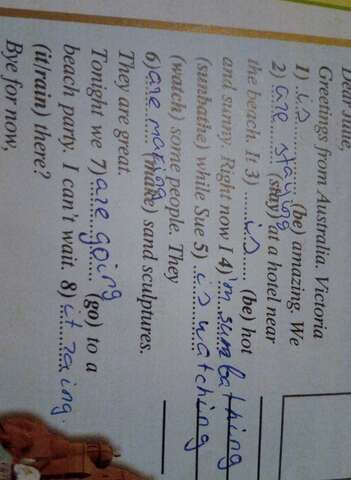 Dear Julie,
Greetings from Australia. Victoria
1) ..is.......... (be) amazing. We
2) are staying (stay) at a hotel near
the beach. It 3) .....is...... (be) hot
and sunny. Right now I 4) 'm sumbathing
(sunbathe) while Sue 5) is watching
(watch) some people. They
6) are making (make) sand sculptures.
They are great.
Tonight we 7) are going (go) to a
beach party. I can't wait. 8) it raing.
(it/rain) there?
Bye for now,